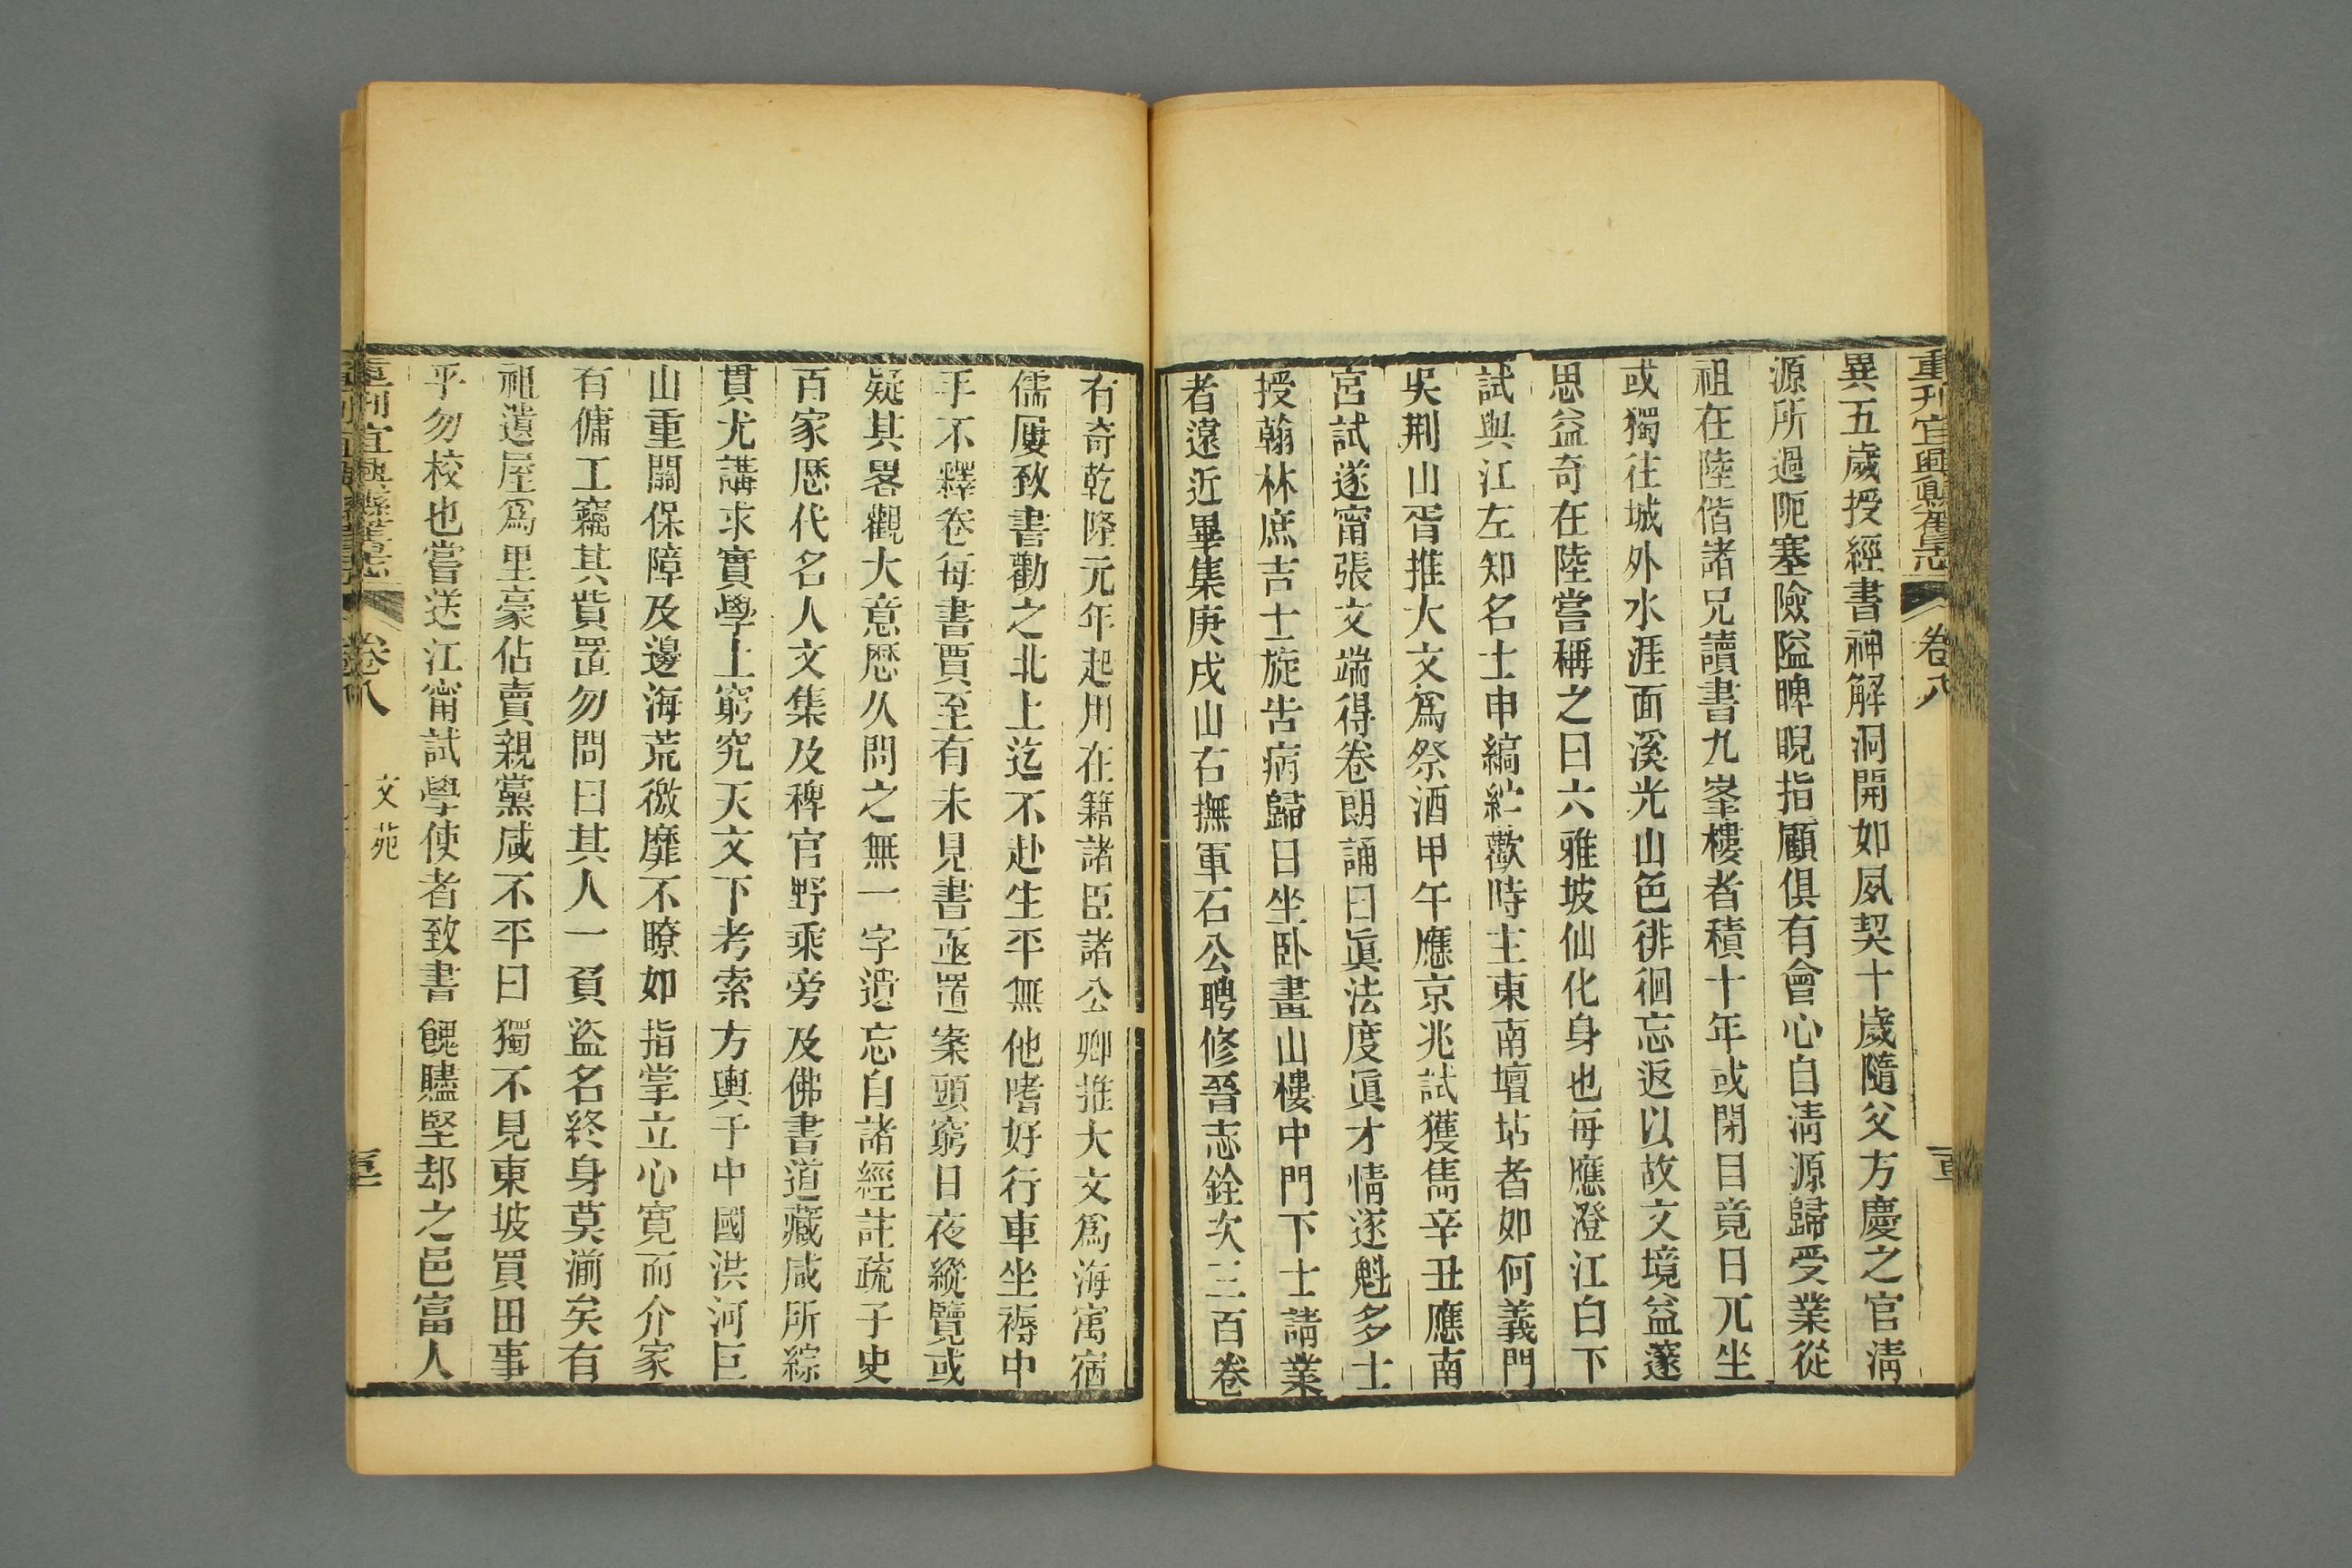 重刋宜興縣舊志 卷八
異五歲授經書神解洞開如夙契十歲隨父方慶之官淸
源所過阨塞險隘睥睨指顧俱有會心自淸源歸受業從
祖在陸偕諸兄讀書九峯樓者積十年或閉目竟日兀坐
或獨往城外水涯面溪光山色徘徊忘返以故文境益邃
思益奇在陸嘗稱之曰六雅坡仙化身也每應澄江白下
試與江左知名士申縞紵歡時主東南壇坫者如何義門
吳荆山胥推大文爲祭酒甲午應京兆試獲雋辛丑應南
宮試遂甯張文端得卷朗誦曰眞法度眞才情遂魁多士
授翰林庶吉士旋告病歸日坐卧畫山樓中門下士請業
者遠近畢集庚戌山右撫軍石公聘修晉志銓次三百卷
有奇乾隆元年起用在籍諸臣諸公卿推大文爲海寓宿
儒屢致書勸之北上迄不赴生平無他嗜好行車坐褥中
手不釋卷每書賈至有未見書亟置案頭窮日夜縱覽或
疑其畧觀大意歷久問之無一字遺忘自諸經註疏子史
百家歷代名人文集及稗官野乘旁及佛書道藏咸所綜
貫尤講求實學上窮究天文下考索方輿于中國洪河巨
山重關保障及邊海荒徼靡不瞭如指掌立心寬而介家
有傭工竊其貲置勿問曰其人一負盜名終身莫湔矣有
祖遺屋爲里豪佔賣親黨咸不平曰獨不見東坡買田事
乎勿校也嘗送江甯試學使者致書餽贐堅却之邑富人
重刋宜興縣舊志 卷八 文苑